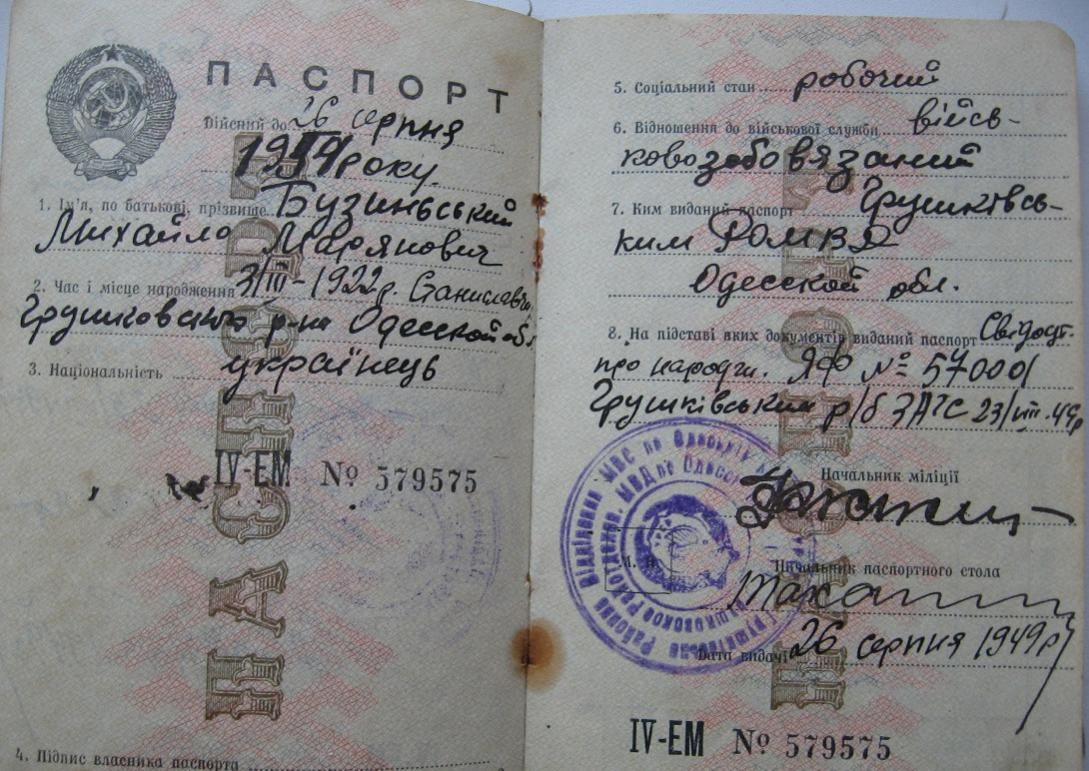 ПАСПОРТ
Дійсний до 26 серпня
1954 року
1. Ім'я, по батькові, прізвище Бузиньський
Михайло Марянович
2. Час і місце народження 3/III-1922 р. Станиславчи
Грушковского р-на Одесской обл
3. Національність українець
IV-ЕМ № 579575
4. Підпис власника паспорта
ПАСПОРТ
5. Соціальний стан робочий
6. Відношення до військової служби війсь-
ковозобовязаний
7. Ким виданий паспорт Грушківсь-
ким РОМВД
Одесской обл.
8. На підставі яких документів виданий паспорт Свідоцт.
про народж. ЯФ № 57000
Грушківським р/б ЗАГС 23/VIII.49р
Начальник міліції
М. П.
Начальник паспортного стола
Дата видачі 26 серпня 1949 р
IV-ЕМ № 579575
ПАСПОРТ